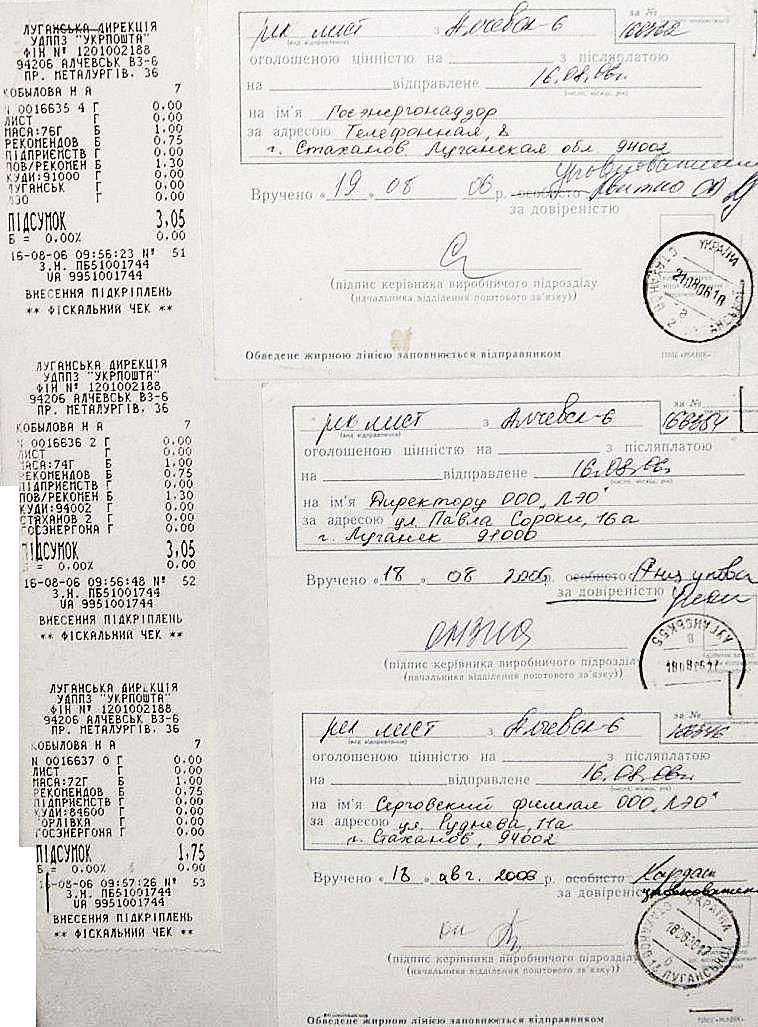 ЛУГАНСЬКА ДИРЕКЦІЯ
УДППЗ "УКРПОШТА"
ФІН № 1201002188
94206 АЛЧЕВСЬК ВЗ-6
ПР. МЕТАЛУРГІВ, 36
КОБЫЛОВА Н А 7
N 0016635 4 Г 0.00
ЛИСТ Г 0.00
МАСА:76Г Б 1.00
РЕКОМЕНДОВ Б 0.75
ПІДПРИЄМСТВ Г 0.00
ПОВ/РЕКОМЕН Б 1.30
КУДИ:91000 Г 0.00
ЛУГАНСЬК Г 0.00
ЛЭО Г 0.00
ПІДСУМОК 3,05
Б = 0.00% 0.00
16-08-06 09:56:23 № 51
З.Н. ПБ51001744
UA 9951001744
ВНЕСЕННЯ ПІДКРІПЛЕНЬ
** ФІСКАЛЬНИЙ ЧЕК **
ЛУГАНСЬКА ДИРЕКЦІЯ
УДППЗ "УКРПОШТА"
ФІН № 1201002188
94206 АЛЧЕВСЬК ВЗ-6
ПР. МЕТАЛУРГІВ, 36
КОБЫЛОВА Н А 7
N 0016636 2 Г 0.00
ЛИСТ Г 0.00
МАСА:74Г Б 1.00
РЕКОМЕНДОВ Б 0.75
ПІДПРИЄМСТВ Г 0.00
ПОВ/РЕКОМЕН Б 1.30
КУДИ:94002 Г 0.00
СТАХАНОВ 2 Г 0.00
ГОСЭНЕРГОНА Г 0.00
ПІДСУМОК 3,05
Б = 0.00% 0.00
16-08-06 09:56:48 № 52
З.Н. ПБ51001744
UA 9951001744
ВНЕСЕННЯ ПІДКРІПЛЕНЬ
** ФІСКАЛЬНИЙ ЧЕК **
ЛУГАНСЬКА ДИРЕКЦІЯ
УДППЗ "УКРПОШТА"
ФІН № 1201002188
94206 АЛЧЕВСЬК ВЗ-6
ПР. МЕТАЛУРГІВ, 36
КОБЫЛОВА Н А 7
N 0016637 0 Г 0.00
ЛИСТ Г 0.00
МАСА:72Г Б 1.00
РЕКОМЕНДОВ Б 0.75
ПІДПРИЄМСТВ Г 0.00
КУДИ:84600 Г 0.00
ГОРЛІВКА Г 0.00
ГОСЭНЕРГОНА Г 0.00
ПІДСУМОК 1,75
Б = 0.00% 0.00
16-08-06 09:57:26 № 53
З.Н. ПБ51001744
UA 9951001744
ВНЕСЕННЯ ПІДКРІПЛЕНЬ
** ФІСКАЛЬНИЙ ЧЕК **
за №
рек лист з Алчевск-6
(вид відправлення)
оголошеною цінністю на з післяплатою
на відправлене 16.08.06г.
(число, місяць, рік)
на ім'я Госэнергонадзор
за адресою Телефонная, 8
г. Стаханов Луганская обл 94002
Вручено «19» 08 06 р. особисто
за довіреністю
(підпис керівника виробничого підрозділу
(начальника відділення поштового зв'язку))
УКРАЇНА
210806 10
Обведене жирною лінією заповнюється відправником
за №
рек лист з Алчевск-6 166364
(вид відправлення)
оголошеною цінністю на з післяплатою
на відправлене 16.08.06г.
(число, місяць, рік)
на ім'я Директору ООО „ЛЭО"
за адресою ул. Павла Сороки, 16а
г. Луганск 91000
Вручено «18» 08 2006 р. особисто
за довіреністю
(підпис керівника виробничого підрозділу
(начальника відділення поштового зв'язку))
ЛУГАНСЬК55
за №
рек лист з Алчевск-6
(вид відправлення)
оголошеною цінністю на з післяплатою
на відправлене 16.08.06г.
(число, місяць, рік)
на ім'я Серговский филиал ООО „ЛЭО"
за адресою ул. Руднева, 11а
г. Стаханов, 94002
Вручено «18» авг. 2006 р. особисто
за довіреністю
(підпис керівника виробничого підрозділу
(начальника відділення поштового зв'язку))
УКРАЇНА
Обведене жирною лінією заповнюється відправником